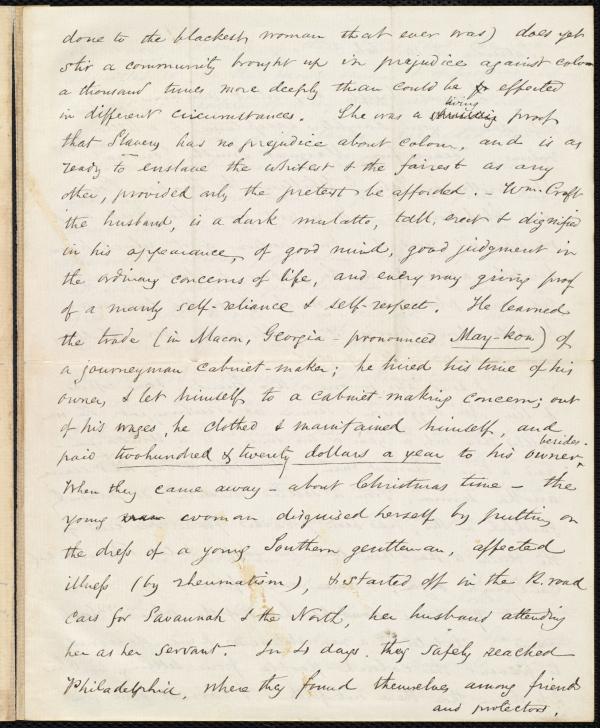 done to the blackest woman that ever was) does yet
stir a community brought up in prejudice against colour
a thousand times more deeply than could be effected
in different circumstances. She was a living proof
that Slavery has no prejudice about colour, and is as
ready to enslave the whitest & the fairest as any
other, provided only the pretext be afforded. – Wm. Craft
the husband, is a dark mulatto, tall, erect & dignified
in his appearance, of good mind, good judgment in
the ordinary concerns of life, and every way giving proof
of a manly self-reliance & self-respect. He learned
the trade (in Macon, Georgia – pronounced May-kon) of
a journeyman cabinet-maker; he hired his time of his
owner, & let himself to a cabinet-making concern; out
of his wages, he clothed & maintained himself, and
paid two hundred & twenty dollars a year to his owner besides.
When they came away – about Christmas time – the
young woman disguised herself by putting on
the dress of a young Southern gentleman, affected
illness (by rheumatism), & started off in the R. road
cars for Savannah & the North, her husband attending
her as her servant. In 4 days, they safely reached
Philadelphia, where they found themselves among friends
and protectors.